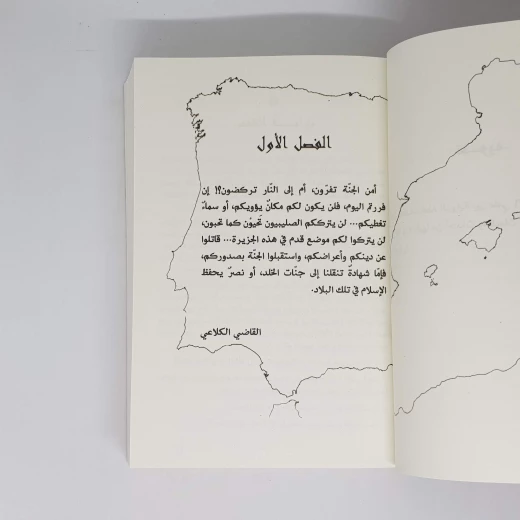 الفصل الأول
أمن الجنّة تفرّون، أم إلى النّار تركضون؟! إن
فررتم اليوم، فلن يكون لكم مكانٌ يؤويكم، أو سماءً
تغطيكم... لن يترككم الصليبيون تحيَوْن كما تحبون،
لن يتركوا لكم موضع قدم في هذه الجزيرة... قاتلوا
عن دينكم وأعراضكم، واستقبلوا الجنّة بصدوركم،
فإمّا شهادةٌ تنقلنا إلى جنّات الخلد، أو نصرٌ يحفظ
الإسلام في تلك البلاد.
القاضي الكلاعي